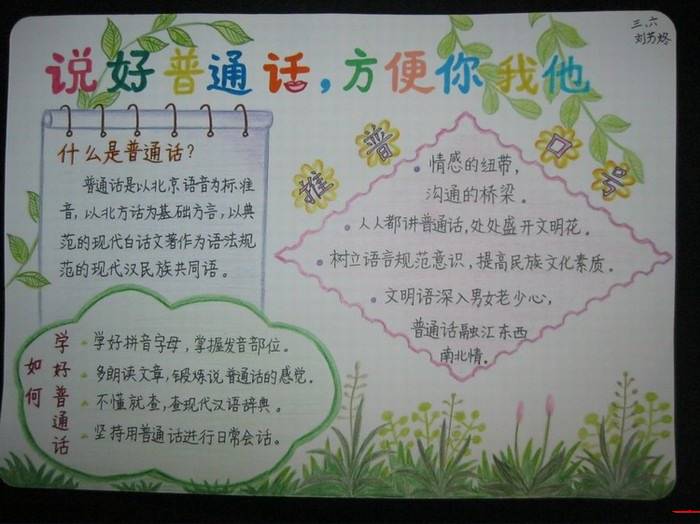 三.六
说好普通话，方便你我他
什么是普通话？
普通话是以北京语音为标准
音，以北方话为基础方言，以典
范的现代白话文著作为语法规
范的现代汉民族共同语。
推普口号
情感的纽带，
沟通的桥梁。
人人都讲普通话，处处盛开文明花。
树立语言规范意识，提高民族文化素质。
文明语深入男女老少心，
普通话融江东西
南北情。
如何
学好普通话
学好拼音字母，掌握发音部位。
多朗读文章，锻炼说普通话的感觉。
不懂就查，查现代汉语辞典。
坚持用普通话进行日常会话。